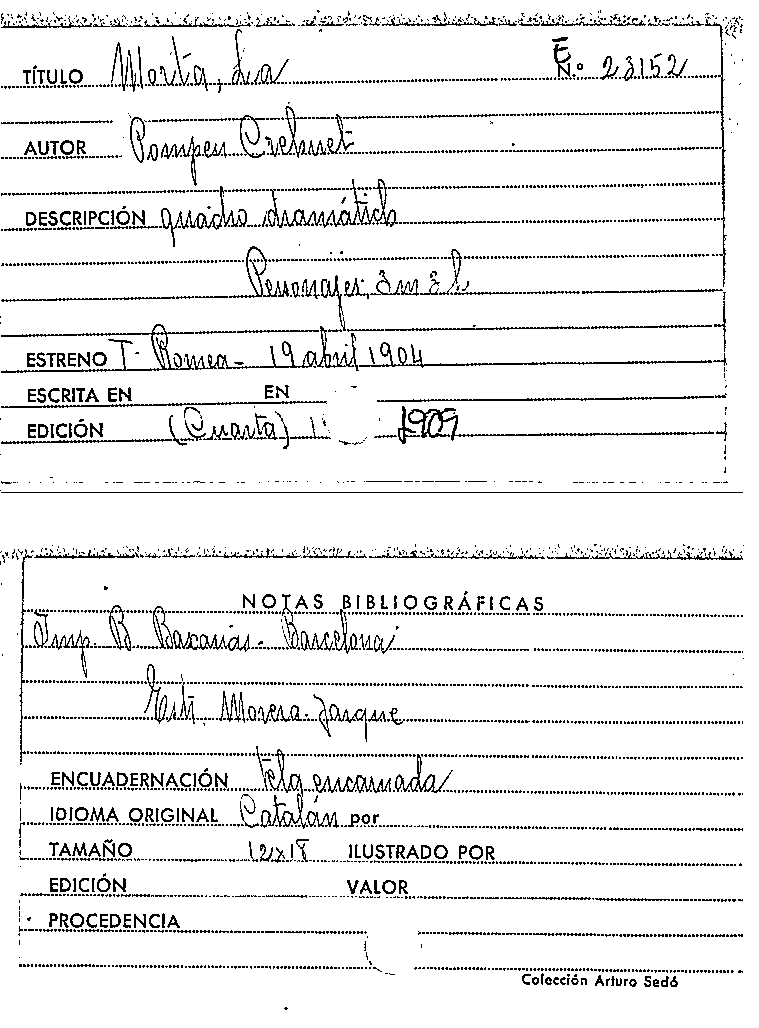 TÍTULO Morta, La E N.º 23152
AUTOR Pompeu Crehuet
DESCRIPCIÓN quadro dramátich
Personajes, 3 m 3 h
ESTRENO T. Romea - 19 abril 1904
ESCRITA EN EN
EDICIÓN (Cuarta) 1909
NOTAS BIBLIOGRÁFICAS
Imp. B Baxarias - Barcelona
Morera-Jarque
ENCUADERNACIÓN tela encarnada
IDIOMA ORIGINAL Catalán por
TAMAÑO 12x18 ILUSTRADO POR
EDICIÓN VALOR
PROCEDENCIA
Colección Arturo Sedó